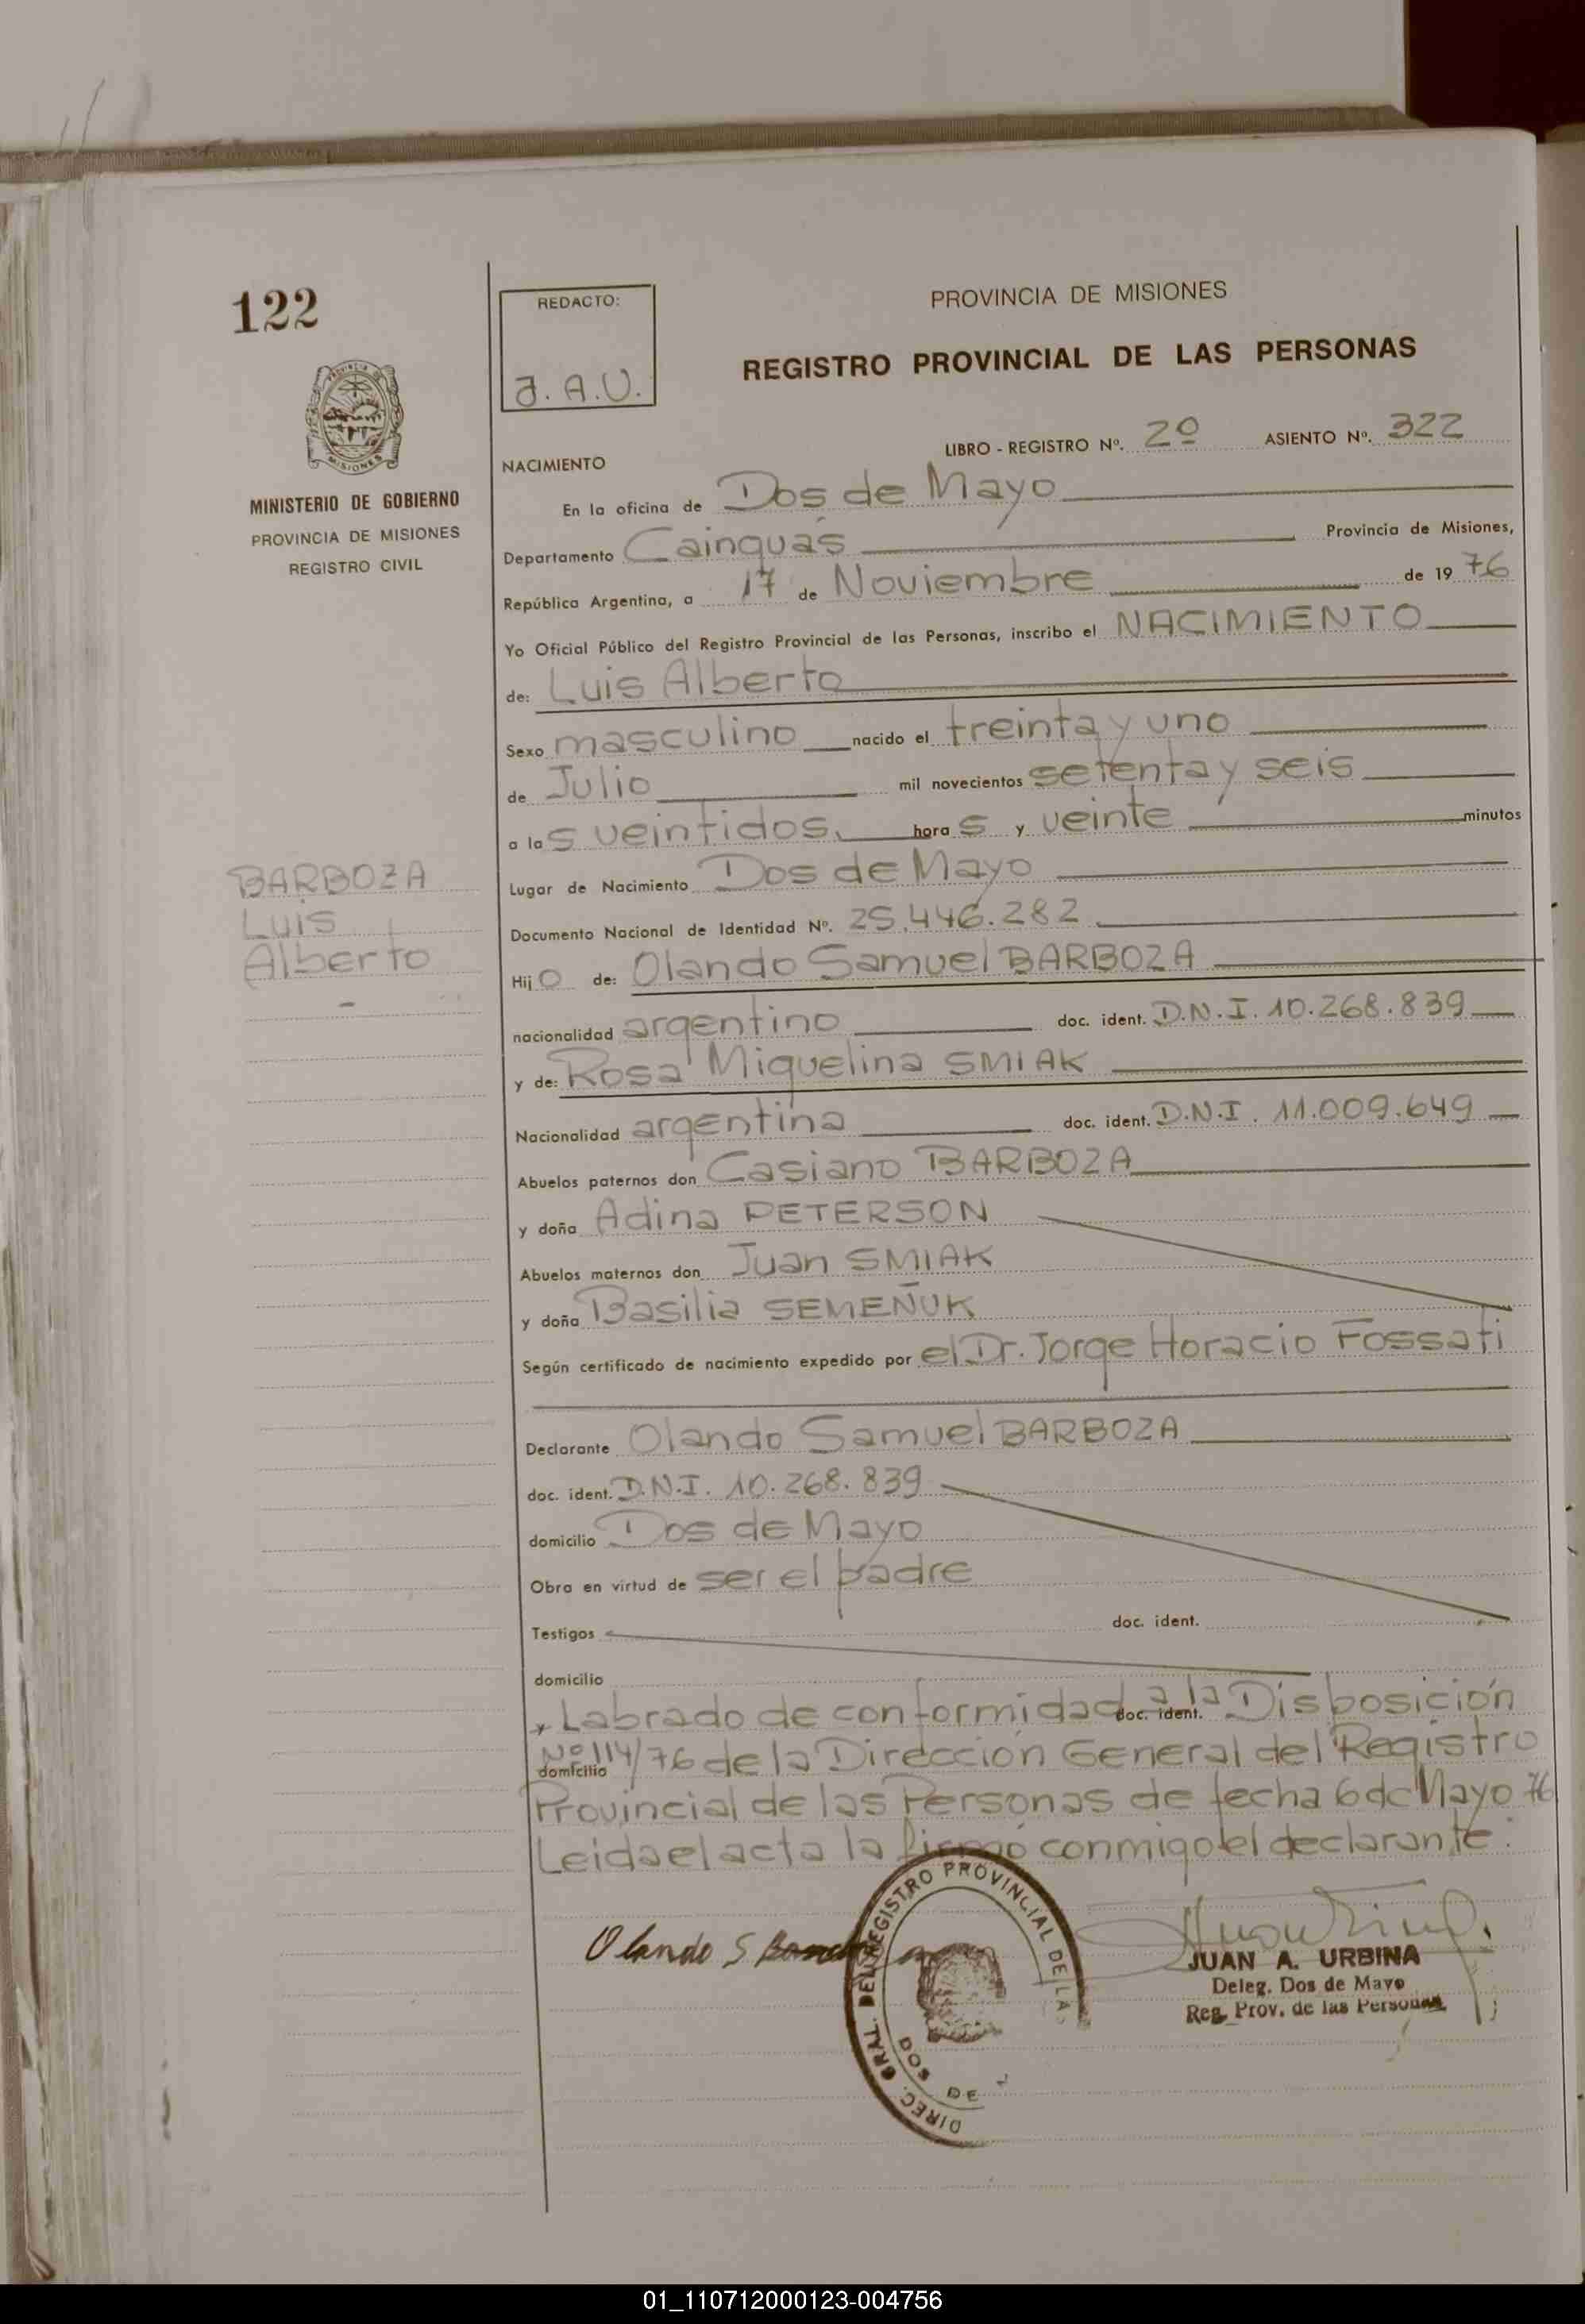 122
REDACTO:
J. A. U.
PROVINCIA DE MISIONES
REGISTRO PROVINCIAL DE LAS PERSONAS
PROVINCIA DE MISIONES
MINISTERIO DE GOBIERNO
PROVINCIA DE MISIONES
REGISTRO CIVIL
LIBRO - REGISTRO Nº. 2º ASIENTO Nº. 322
NACIMIENTO
En la oficina de Dos de Mayo
Departamento Cainguás Provincia de Misiones,
República Argentina, a 17 de Noviembre de 19 76
Yo Oficial Público del Registro Provincial de las Personas, inscribo el NACIMIENTO
de: Luis Alberto
Sexo masculino nacido el treinta y uno
de Julio mil novecientos setenta y seis
a las veintidos, horas y veinte minutos
Lugar de Nacimiento Dos de Mayo
BARBOZA
Luis
Alberto
Documento Nacional de Identidad Nº. 25.446.282
Hijo de: Olando Samuel BARBOZA
nacionalidad argentino doc. ident. D.N.I. 10.268.839
y de: Rosa Miguelina SMIAK
Nacionalidad argentina doc. ident. D.N.I. 11.009.649
Abuelos paternos don Casiano BARBOZA
y doña Adina PETERSON
Abuelos maternos don Juan SMIAK
y doña Basilia SEMEÑUK
Según certificado de nacimiento expedido por el Dr. Jorge Horacio Fossati
Declarante Olando Samuel BARBOZA
doc. ident. D.N.I. 10.268.839
domicilio Dos de Mayo
Obra en virtud de ser el padre
Testigos doc. ident.
domicilio
* Labrado de conformidad a la Disposición
doc. ident.
Nº 114/76 de la Dirección General del Registro
domicilio
Provincial de las Personas de fecha 6 de Mayo 76
Leida el acta la firmó conmigo el declarante.
Olando S
DIREC. GRAL. DEL REGISTRO PROVINCIAL DE LAS
DOS DE
JUAN A. URBINA
Deleg. Dos de Mayo
Reg. Prov. de las Personas
01_110712000123-004756